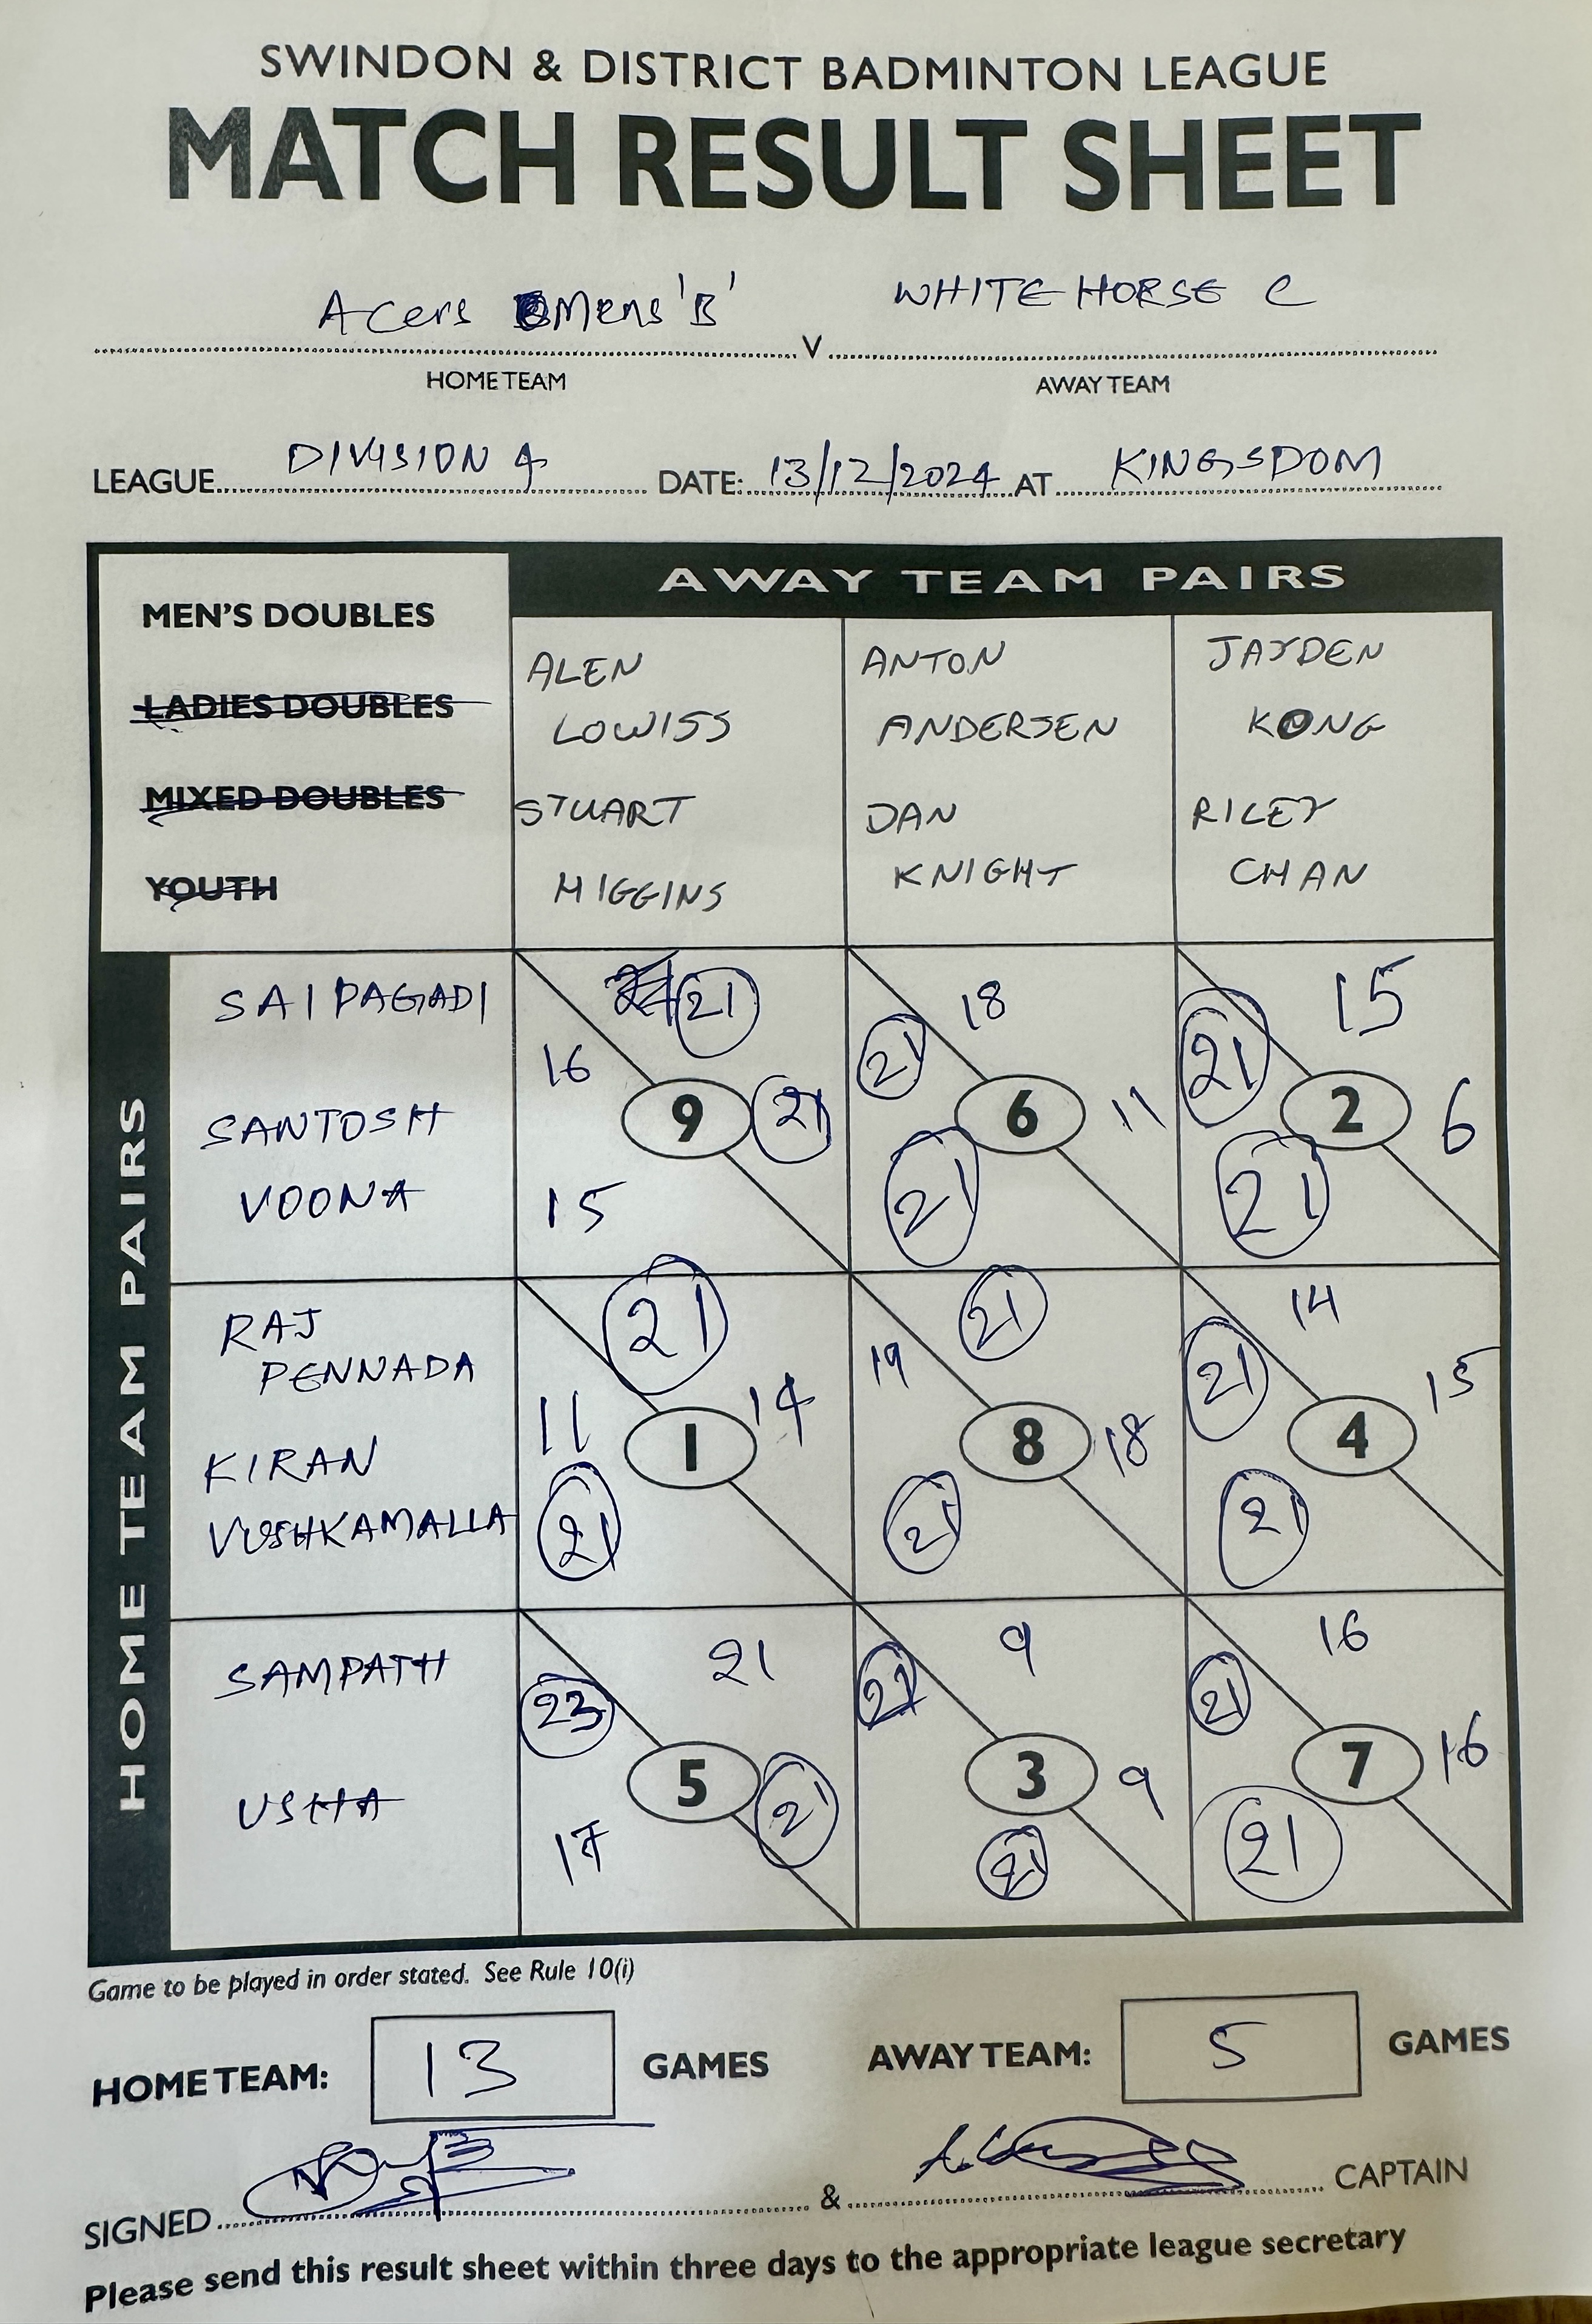 SWINDON & DISTRICT BADMINTON LEAGUE
MATCH RESULT SHEET
Acers Mens 'B' v WHITE HORSE C
HOME TEAM AWAY TEAM
LEAGUE DIVISION 4 DATE: 13/12/2024 AT KINGSDOM
MEN'S DOUBLES
LADIES DOUBLES
MIXED DOUBLES
YOUTH
AWAY TEAM PAIRS
ALEN
LOWISS
STUART
HIGGINS
ANTON
ANDERSEN
DAN
KNIGHT
JAYDEN
KONG
RILEY
CHAN
HOME TEAM PAIRS
SAI PAGADI
SANTOSH
VOONA
21
16
9 21
15
18
21
6 11
21
15
21
2 6
21
RAJ
PENNADA
KIRAN
VUSHKAMALLA
21
11 1 14
21
21
19
8 18
21
14
21 15
4
21
SAMPATH
USHA
21
23
5 21
17
9
21
3 9
21
16
21
7 16
21
Game to be played in order stated. See Rule 10(i)
HOME TEAM: 13 GAMES AWAY TEAM: 5 GAMES
SIGNED & CAPTAIN
Please send this result sheet within three days to the appropriate league secretary